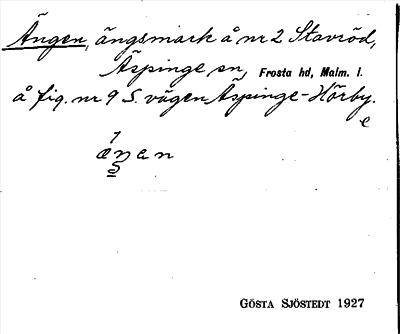 Ängen, ängsmark å nr 2 Stavröd,
Äspinge sn, Frosta hd, Malm. l.
å fig. nr 9 S. vägen Äspinge-Hörby.
e
1
æŋen
GÖSTA SJÖSTEDT 1927